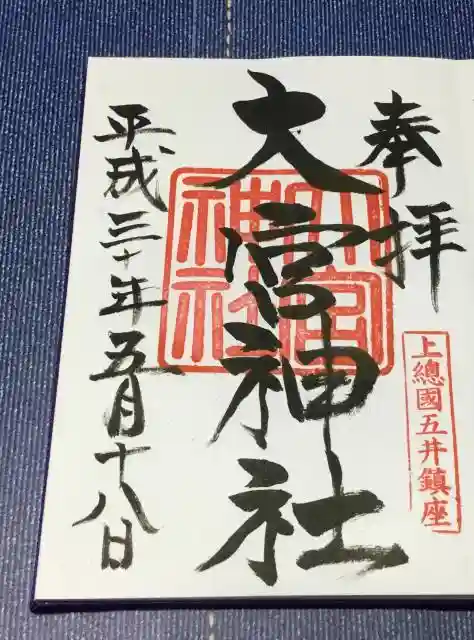 奉拝
上總國五井鎮座
大宮神社
大宮神社
平成三十年五月十八日